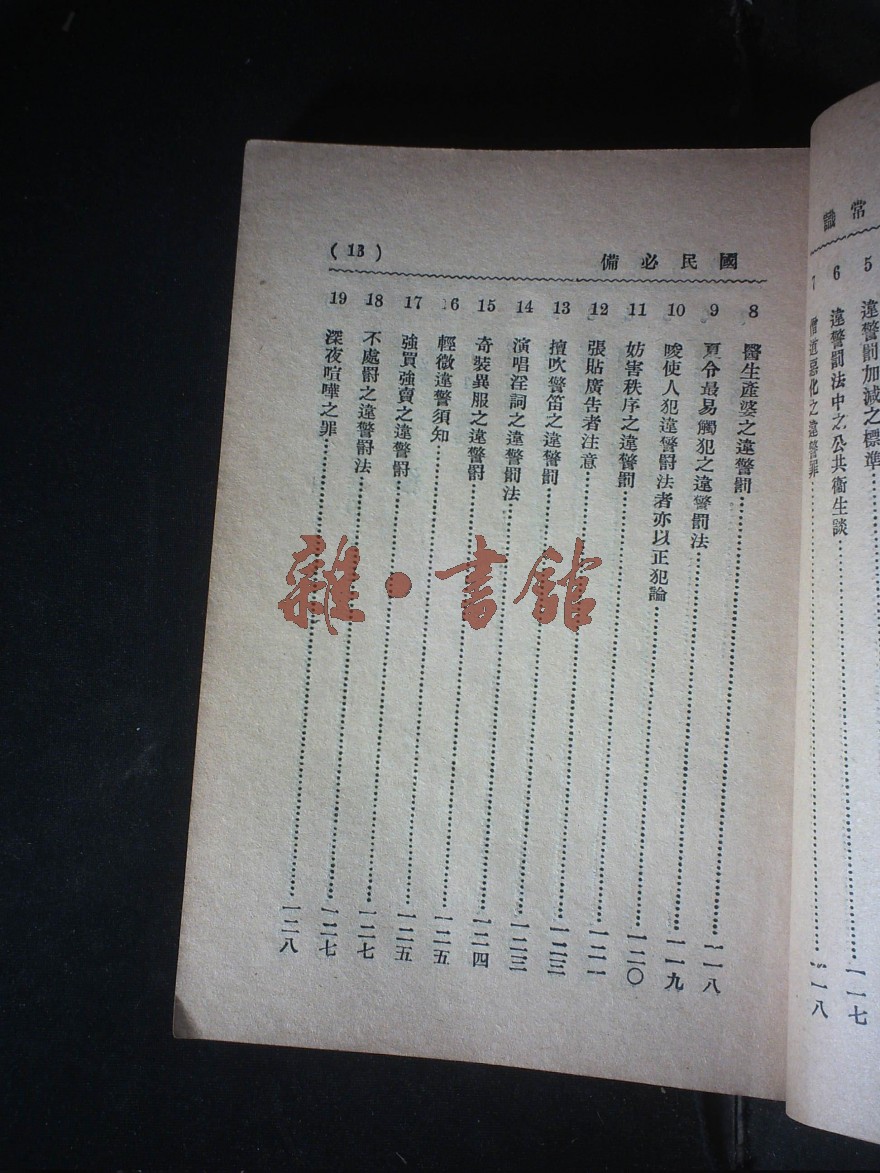 常識
5 違警罰加減之標準
6 違警罰法中之公共衞生談……一一七
7 僧道惡化之違警罪……一一八
國民必備 (13)
8 醫生產婆之違警罰……一一八
9 夏令最易觸犯之違警罰法……一一九
10 唆使人犯違警罰法者亦以正犯論……一二〇
11 妨害秩序之違警罰……一二一
12 張貼廣告者注意……一二三
13 擅吹警笛之違警罰……一二三
14 演唱淫詞之違警罰法……一二四
15 奇裝異服之違警罰……一二五
16 輕微違警須知……一二五
17 強買強賣之違警罰……一二七
18 不處罰之違警罰法……一二七
19 深夜喧嘩之罪……一二八
雜·書館